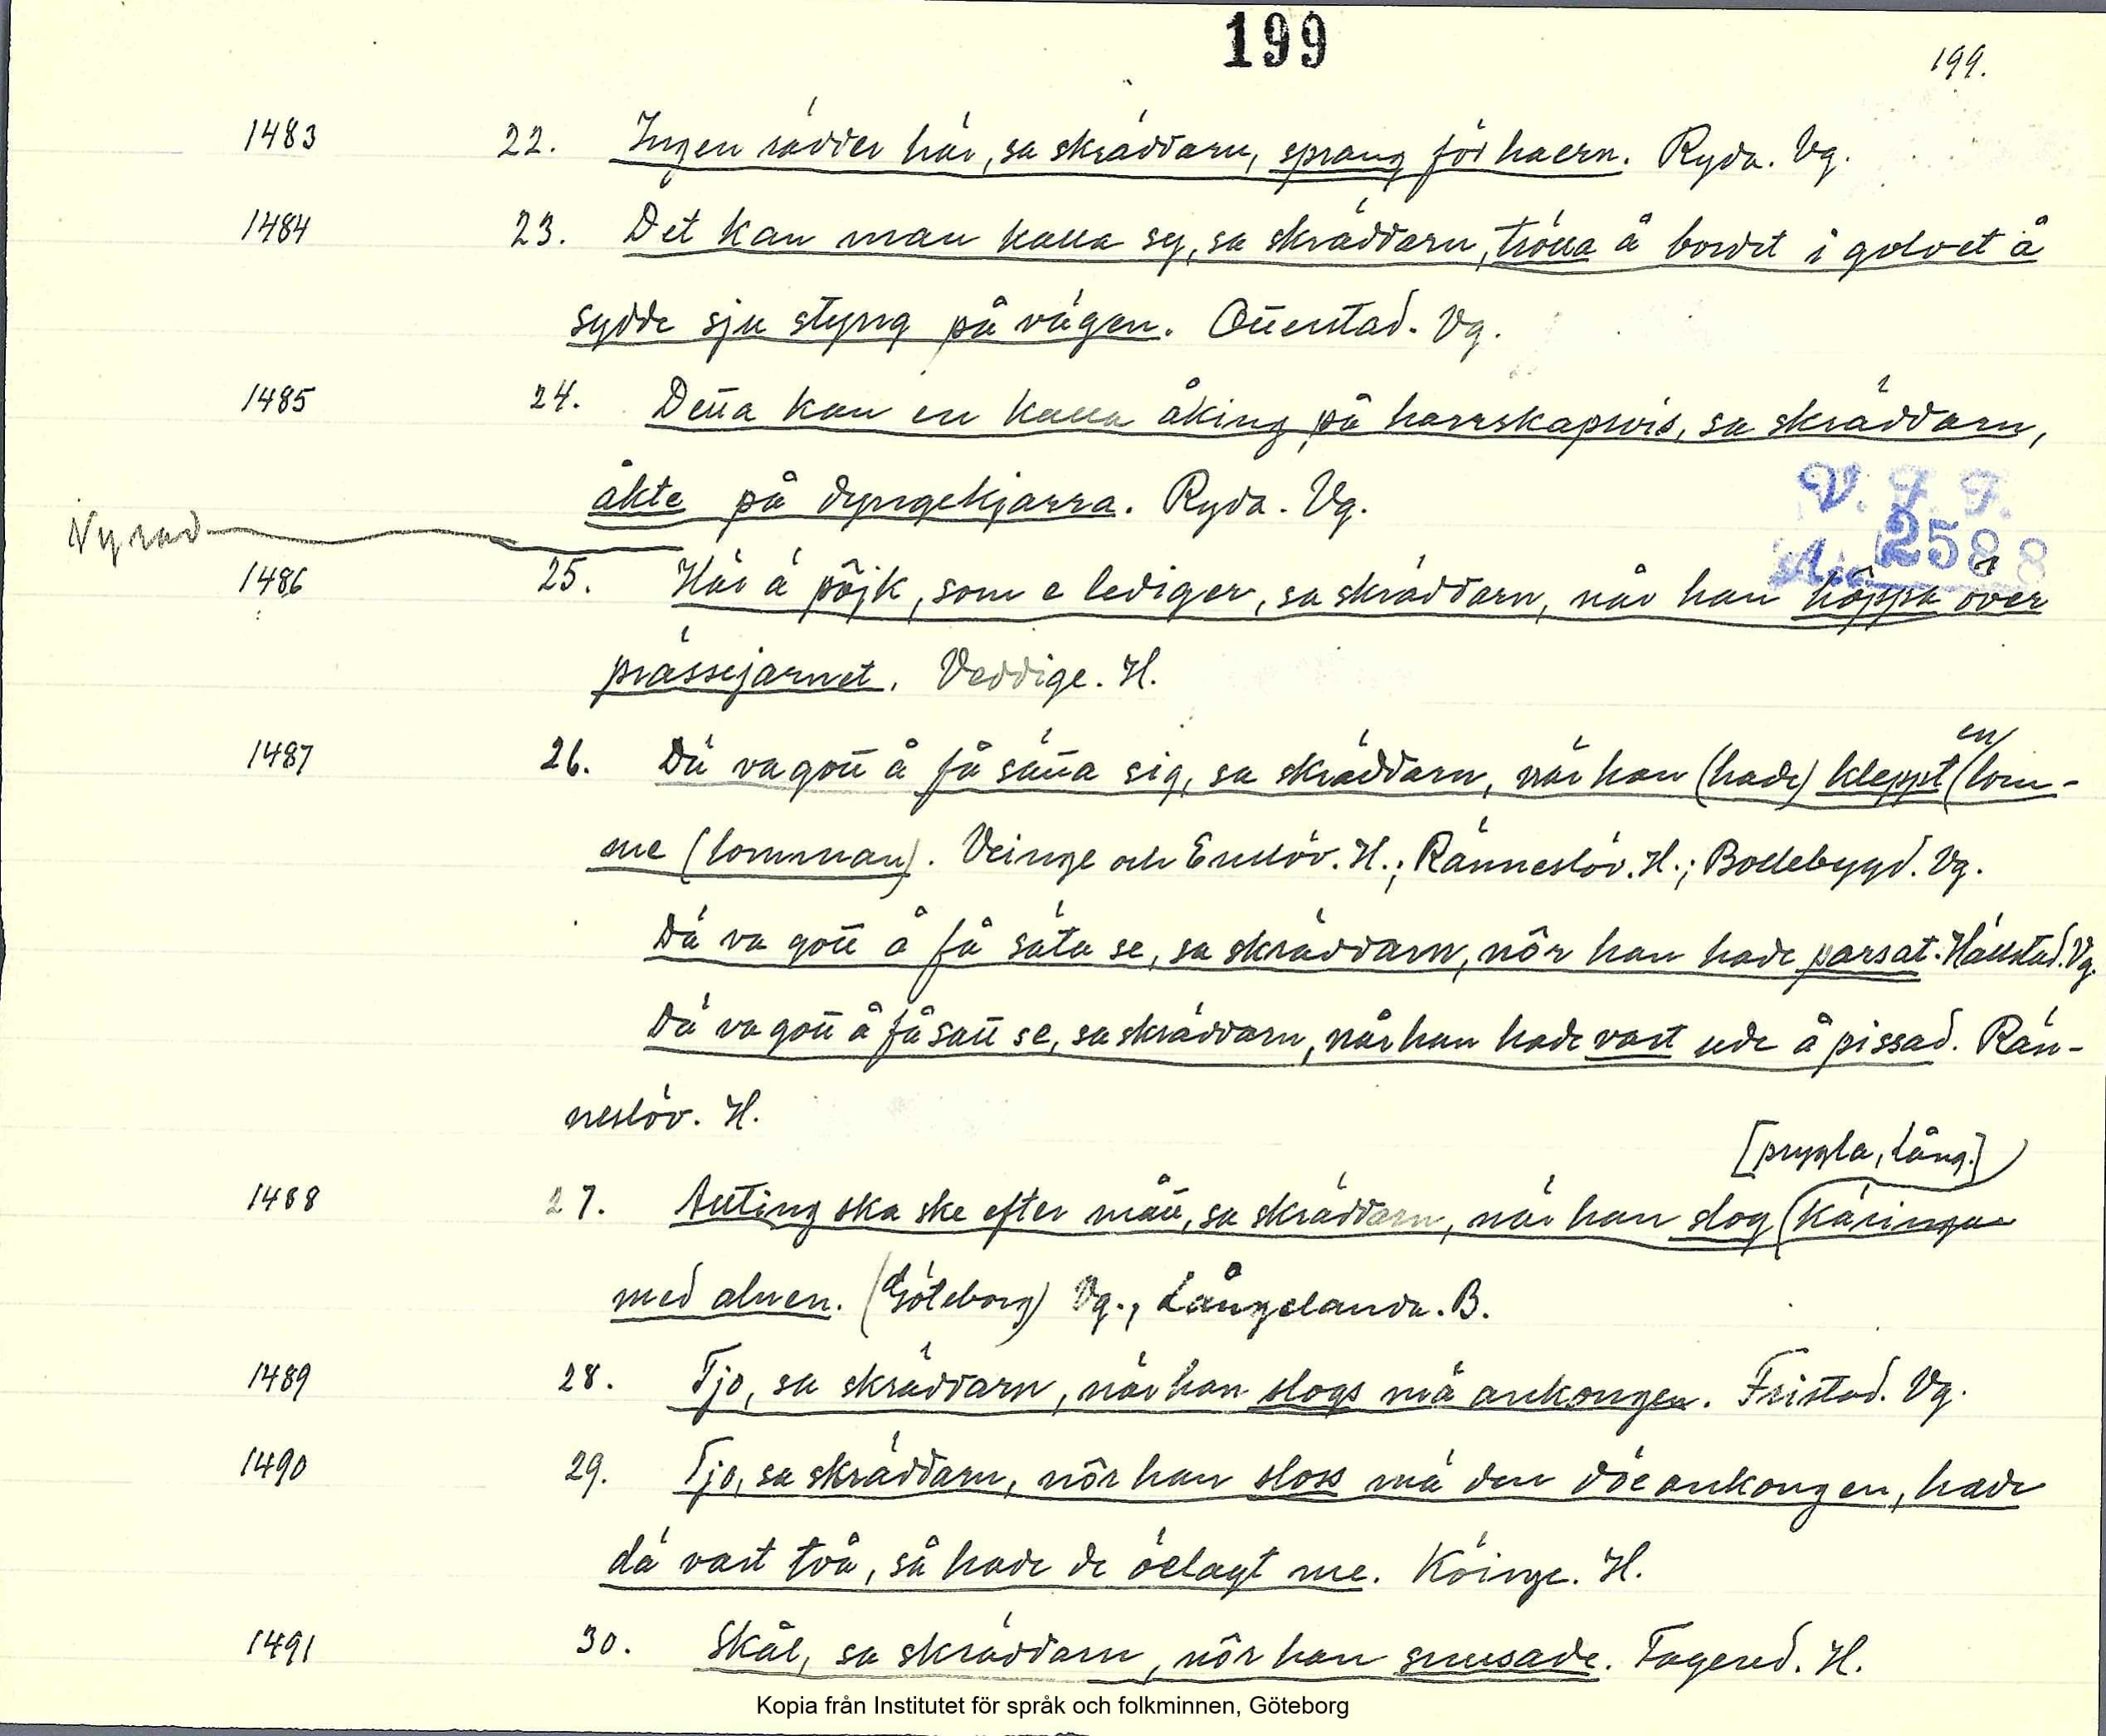 199
199.
1483 22. Ingen rädder här, sa skräddarn, sprang för haern. Ryda. Vg.
1484 23. Det kan man kalla sy, sa skräddarn, trölla å bordet i golvet å
sydde sju styng på vägen. Otterstad. Vg.
1485 24. Detta kan en kalla åking på harrskapsvis, sa skräddarn,
åkte på dyngekjarra. Ryda. Vg.
Ny rad
V. F. F.
2588
1486 25. Här ä pöjk, som e lediger, sa skräddarn, når han höppa över
prässejarnet. Veddige. H.
1487 26. Dä va gott å få sätta sig, sa skräddarn, när han (hade) kleppt (lom-
en
me (lomman). Veinge och Enslöv. H.; Ränneslöv. H.; Bollebygd. Vg.
Dä va gott å få säta se, sa skräddarn, nôr han hade parsat. Hällstad. Vg.
Dä va gott å få satt se, sa skräddarn, når han hade vart ude å pissad. Rän-
neslöv. H.
[prygla, Lång.]
1488 27. Allting ska ske efter mått, sa skräddarn, när han slog (käringa
med alnen. (Göteborg) Vg., Långelanda. B.
1489 28. Tjo, sa skräddarn, när han slogs mä ankongen. Fristad. Vg.
1490 29. Tjo, sa skräddarn, nôr han sloss mä den döe ankongen, hade
dä vart två, så hade de öelagt me. Köinge. H.
1491 30. Skål, sa skräddarn, nôr han snusade. Fagered. H.
Kopia från Institutet för språk och folkminnen, Göteborg